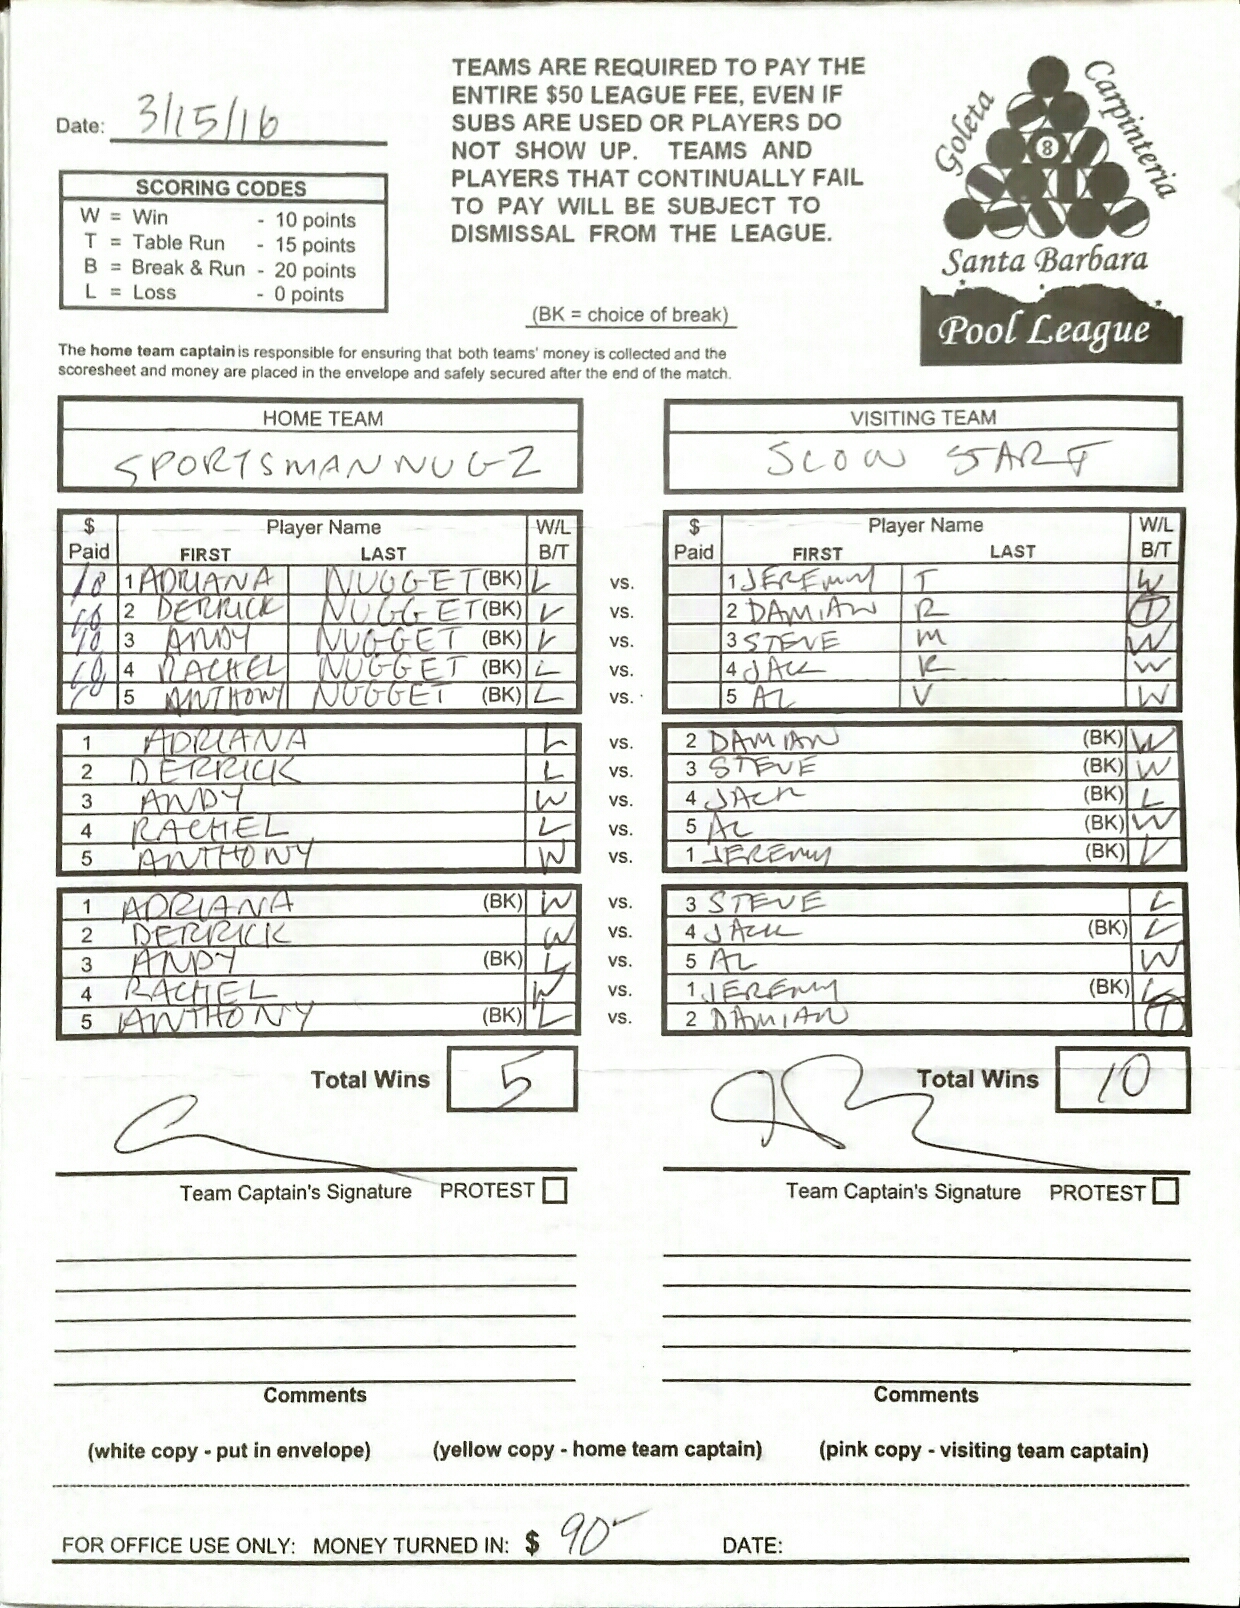 Date: 3/15/16
TEAMS ARE REQUIRED TO PAY THE
ENTIRE $50 LEAGUE FEE, EVEN IF
SUBS ARE USED OR PLAYERS DO
NOT SHOW UP. TEAMS AND
PLAYERS THAT CONTINUALLY FAIL
TO PAY WILL BE SUBJECT TO
DISMISSAL FROM THE LEAGUE.
Goleta
Carpinteria
8
Santa Barbara
Pool League
SCORING CODES
W = Win - 10 points
T = Table Run - 15 points
B = Break & Run - 20 points
L = Loss - 0 points
(BK = choice of break)
The home team captain is responsible for ensuring that both teams' money is collected and the
scoresheet and money are placed in the envelope and safely secured after the end of the match.
HOME TEAM VISITING TEAM
SPORTSMANNUGZ SLOW START
$ Paid Player Name FIRST LAST W/L B/T $ Paid Player Name FIRST LAST W/L B/T
10 1 ADRIANA NUGGET (BK) L vs. 1 JEREMY T W
2 DERRICK NUGGET (BK) L vs. 2 DAMIAN R T
10 3 ANDY NUGGET (BK) L vs. 3 STEVE M W
4 RACHEL NUGGET (BK) L vs. 4 JACK K W
5 ANTHONY NUGGET (BK) L vs. 5 AL V W
1 ADRIANA L vs. 2 DAMIAN (BK) W
2 DERRICK L vs. 3 STEVE (BK) W
3 ANDY W vs. 4 JACK (BK) L
4 RACHEL L vs. 5 AL (BK) W
5 ANTHONY W vs. 1 JEREMY (BK) L
1 ADRIANA (BK) W vs. 3 STEVE L
2 DERRICK W vs. 4 JACK (BK) L
3 ANDY (BK) L vs. 5 AL W
4 RACHEL W vs. 1 JEREMY (BK) L
5 ANTHONY (BK) L vs. 2 DAMIAN T
Total Wins 5 Total Wins 10
Team Captain's Signature PROTEST Team Captain's Signature PROTEST
Comments Comments
(white copy - put in envelope) (yellow copy - home team captain) (pink copy - visiting team captain)
FOR OFFICE USE ONLY: MONEY TURNED IN: $ 90- DATE: